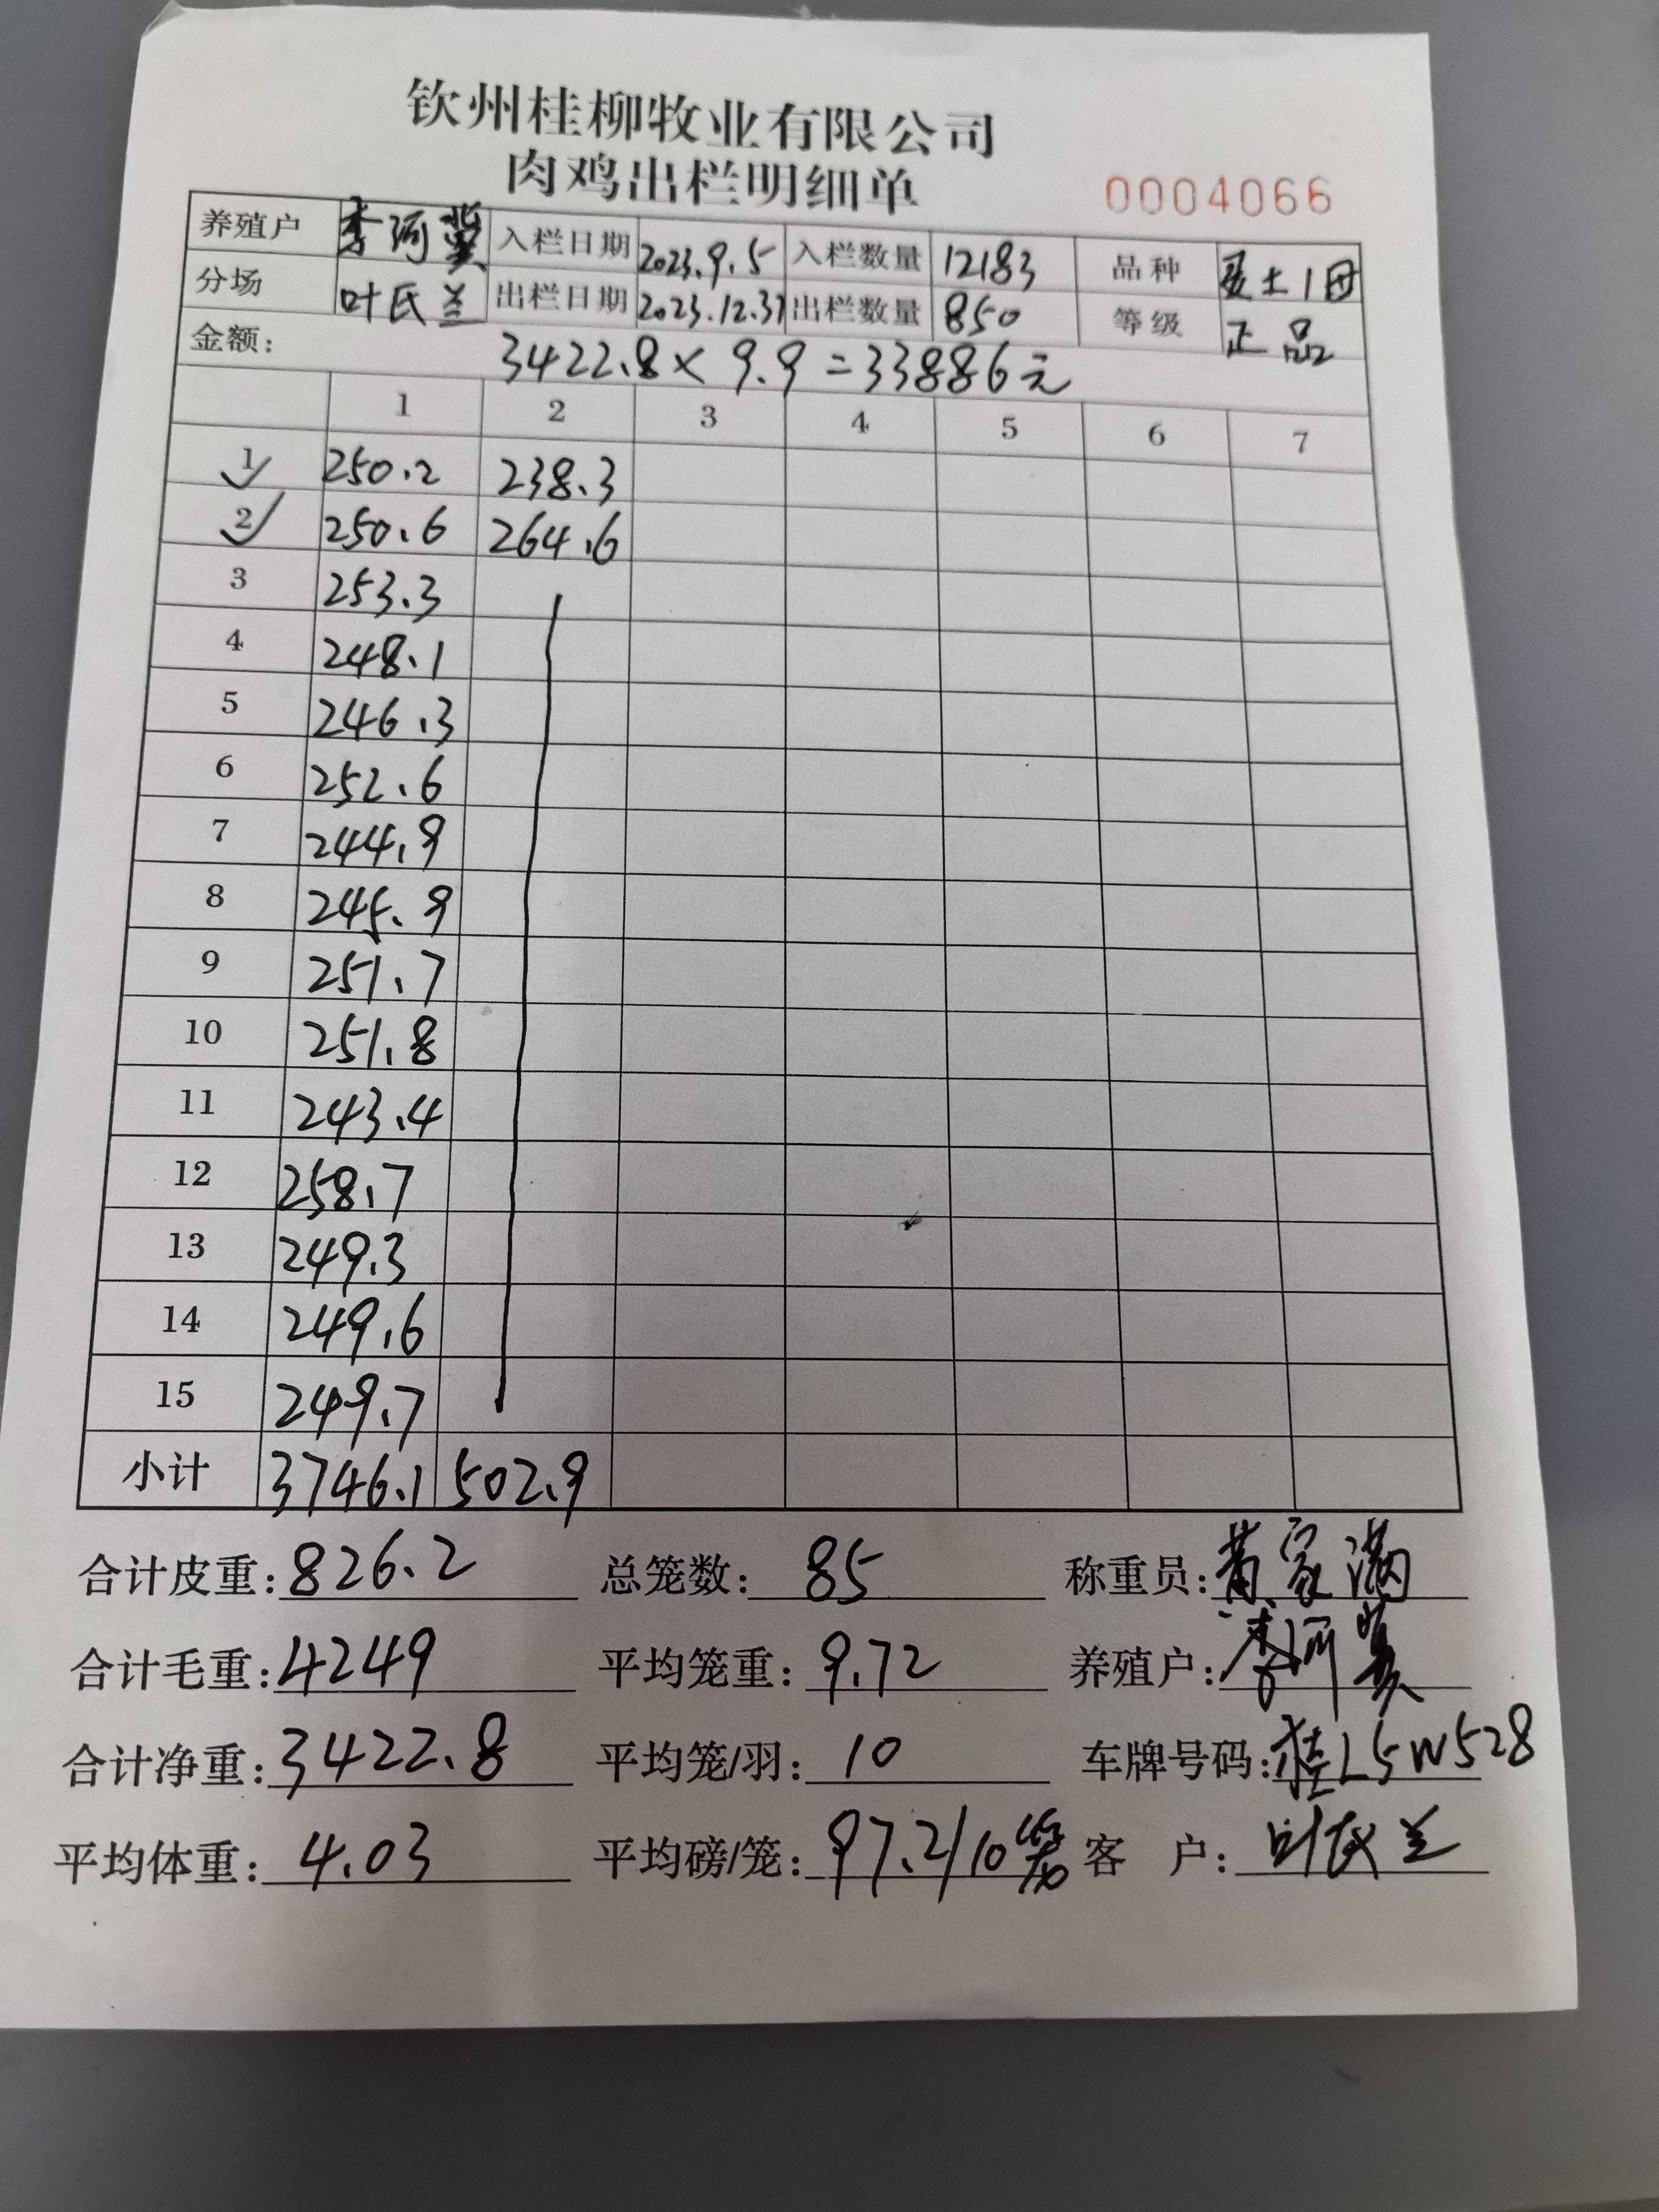 钦州桂柳牧业有限公司
肉鸡出栏明细单 0004066
养殖户 李河 入栏日期 2023.9.5 入栏数量 12183 品种 土1
分场 叶氏兰 出栏日期 2023.12.31 出栏数量 850 等级 正品
金额: 3422.8×9.9=33886元
1 2 3 4 5 6 7
1 250.2 238.3
2 250.6 264.6
3 253.3
4 248.1
5 246.3
6 252.6
7 244.9
8 245.9
9 251.7
10 251.8
11 243.4
12 258.7
13 249.3
14 249.6
15 249.7
小计 3746.1 502.9
合计皮重: 826.2 总笼数: 85 称重员: 黄家满
合计毛重: 4249 平均笼重: 9.72 养殖户: 李河
合计净重: 3422.8 平均笼/羽: 10 车牌号码: 桂L5W528
平均体重: 4.03 平均磅/笼: 97.2/10笼 客 户: 叶氏兰